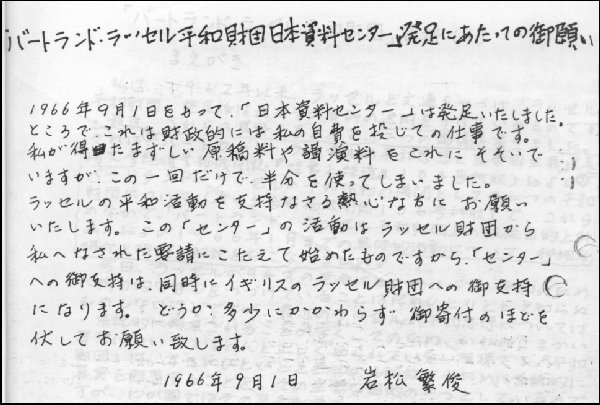 「バートランド・ラッセル平和財団日本資料センター」発足にあたっての御願い
1966年9月1日をもって、「日本資料センター」は発足いたしました。
ところで、これは財政的には私の自費を投じての仕事です。
私が得たまずしい原稿料や講演料をこれにそそいで
いますが、この一回だけで、半分を使ってしまいました。
ラッセルの平和活動を支持なさる熱心な方に お願い
いたします。この「センター」の活動はラッセル財団から
私へなされた要請にこたえて始めたものですから、「センター」
への御支持は、同時にイギリスのラッセル財団への御支持
になります。どうか、多少にかかわらず 御寄付のほどを
伏してお願い致します。
1966年9月1日 岩松繁俊